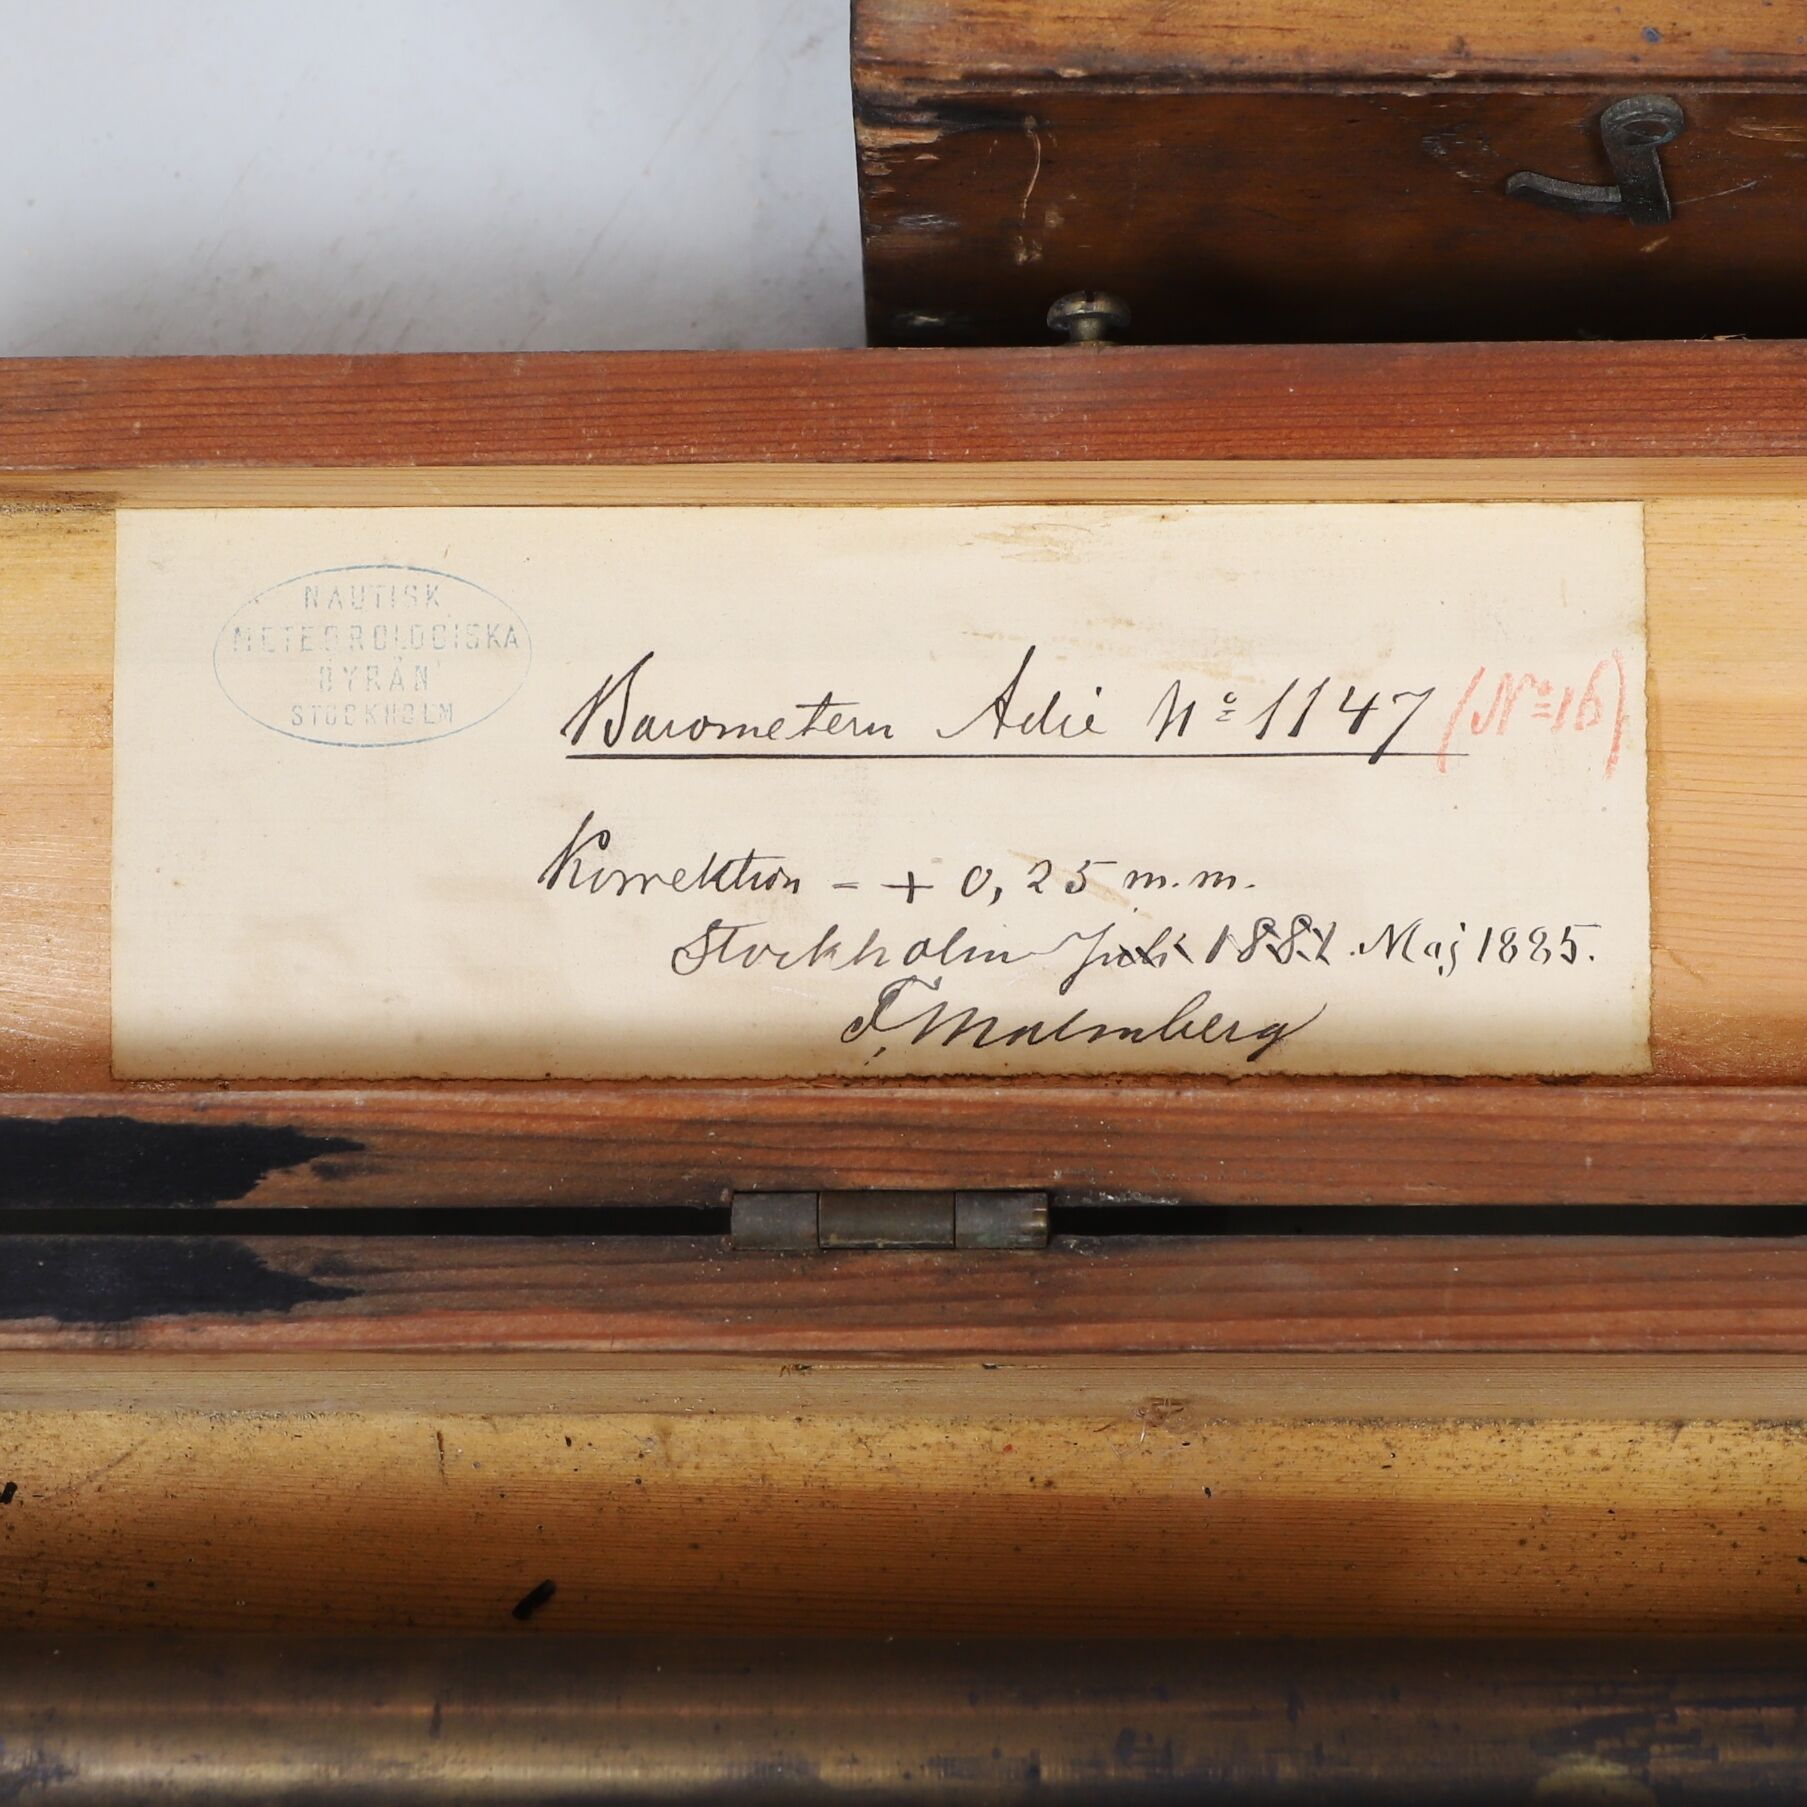 NAUTISK
METEOROLOGISKA
BYRÅN
STOCKHOLM
Barometern Adie No 1147 (No 16)
Korrektion = + 0,25 m.m.
Stockholm Juli 1881. Maj 1885.
F. Malmberg